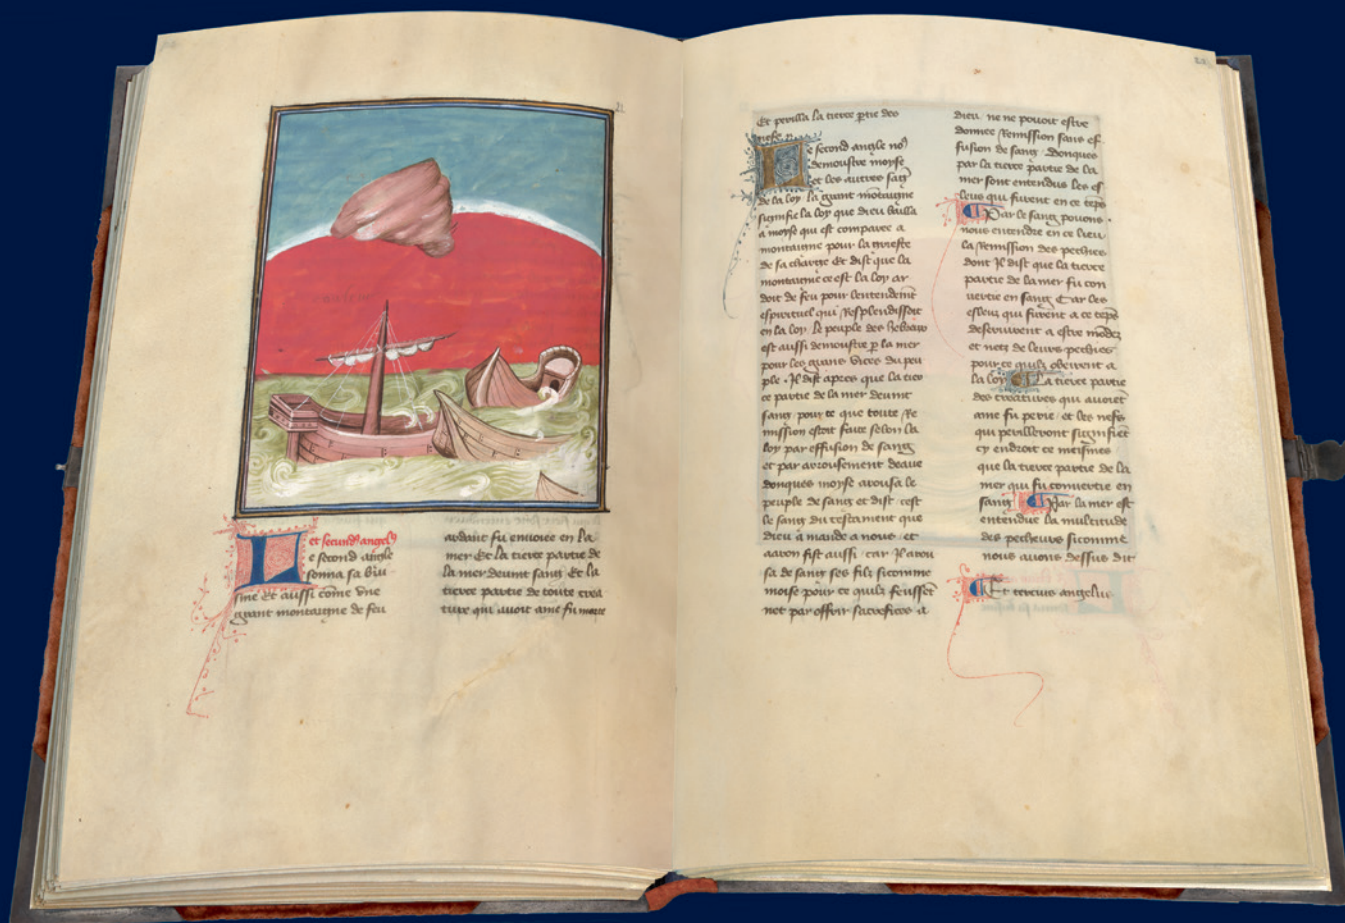 et secund angel
Le second angle
sonna sa bui
sine Et aussi come une
grant montaigne de feu
ardant fu enuoiee en la
mer Et la tierce partie de
la mer deuint sang Et la
tierce partie de toute crea
ture qui auoit ame fu morte
Et perilla la tierce ptie des
nefs
Le second angle no9
demoustre moyse
et les autres sains
de la loy la grant motaigne
signifie la loy que dieu bailla
a moyse qui est comparee a
montaigne pour la griefte
de sa charge Et dist que la
montaigne ce est la loy ar
doit de feu pour lentendemt
espirituel qui resplendissoit
en la loy. Le peuple des hebrieux
est aussi demoustre p la mer
pour les grans vices du peu
ple. Il dist apres que la tier
ce partie de la mer deuint
sang pour ce que toute re
mission estoit faite selon la
loy par effusion de sang
et par arrousement deaue
donques moyse arousa le
peuple de sang et dist cest
le sang du testament que
dieu a mande a nous. et
aaron fist aussi car Il arou
sa de sang ses filz sicomme
moise pour ce quilz feussent
net par offrir sacrefices a
dieu. ne ne pouoit estre
donnee remission sans ef
fusion de sang. Donques
par la tierce partie de la
mer sont entendus les es
leus qui furent en ce teps
Par le sang pouons
nous entendre en ce lieu
la remission des pechies
dont Il dist que la tierce
partie de la mer fu con
uertie en sang Car les
esleuz qui furent a ce teps
desseruirent a estre modez
et netz de leurs pechies
pour ce quilz obeirent a
la loy La tierce partie
des creatures qui auoiet
ame fu perie. et les nefs
qui perillerent signifiet
cy endroit ce meismes
que la tierce partie de la
mer qui fu conuertie en
sang Par la mer est
entendue la multitude
des pecheurs sicomme
nous auons dessus dit
Et tercius angelus